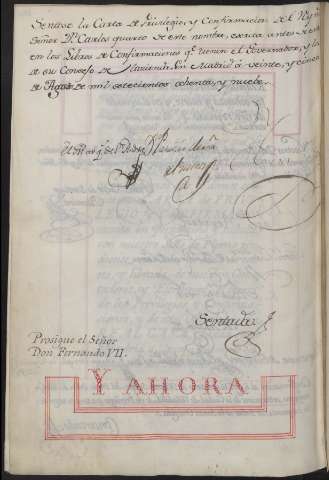 Sentose la Carta de Privilegio, y Confirmacion de el Rey
Señor Dn. Carlos quarto de este nombre, escrita antes de esta
en los Libros de Confirmaciones qe. tienen el Governador, y los
de su Consejo de Hacienda. En Madrid a veinte, y cinco
de Agto. de mil setecientos ochenta, y nueve.
El
Sentado
Prosigue el Señor
Don Fernando VII.
Y AHORA